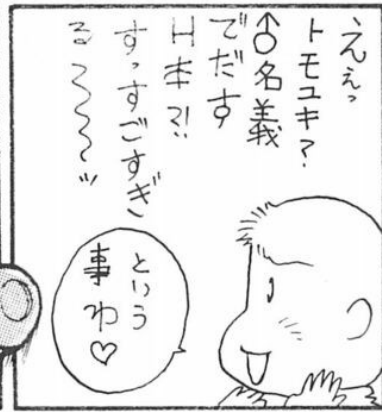 えぇっ
トモユキ?
♂名義
でだす
H本?!
すっすごすぎ
る〜〜〜
という
事わ♡